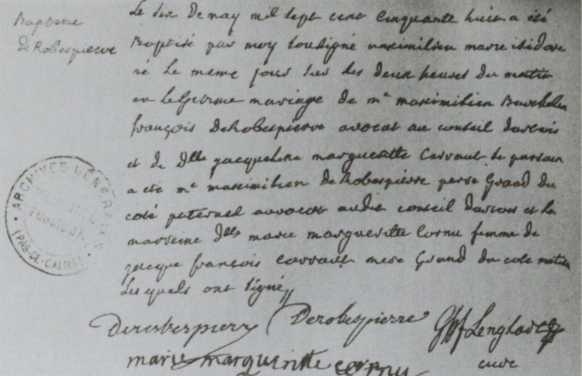 Baptesme
DeRobespierre
Le six de may mil sept cent cinquante huit a été
Baptisé par moy soussigné maximilien marie isidore
né le meme jour sur les deux heures du matin
en legitime mariage de mr maximilien Barthelemi
françois deRobespierre avocat au conseil dartois
et de Dlle jacqueline margueritte Carraut. le parrain
a eté mr maximilien deRobespierre pere Grand du
coté paternel avocat audit conseil dartois et la
marreine Dlle marie margueritte Cornu femme de
jacque françois Carraut mere Grand du coté
lesquels ont signé
ARCHIVES GENERALES
(PAS-DE-CALAIS)
Derobespierre Derobespierre Lenglart
marie margueritte cornu curé